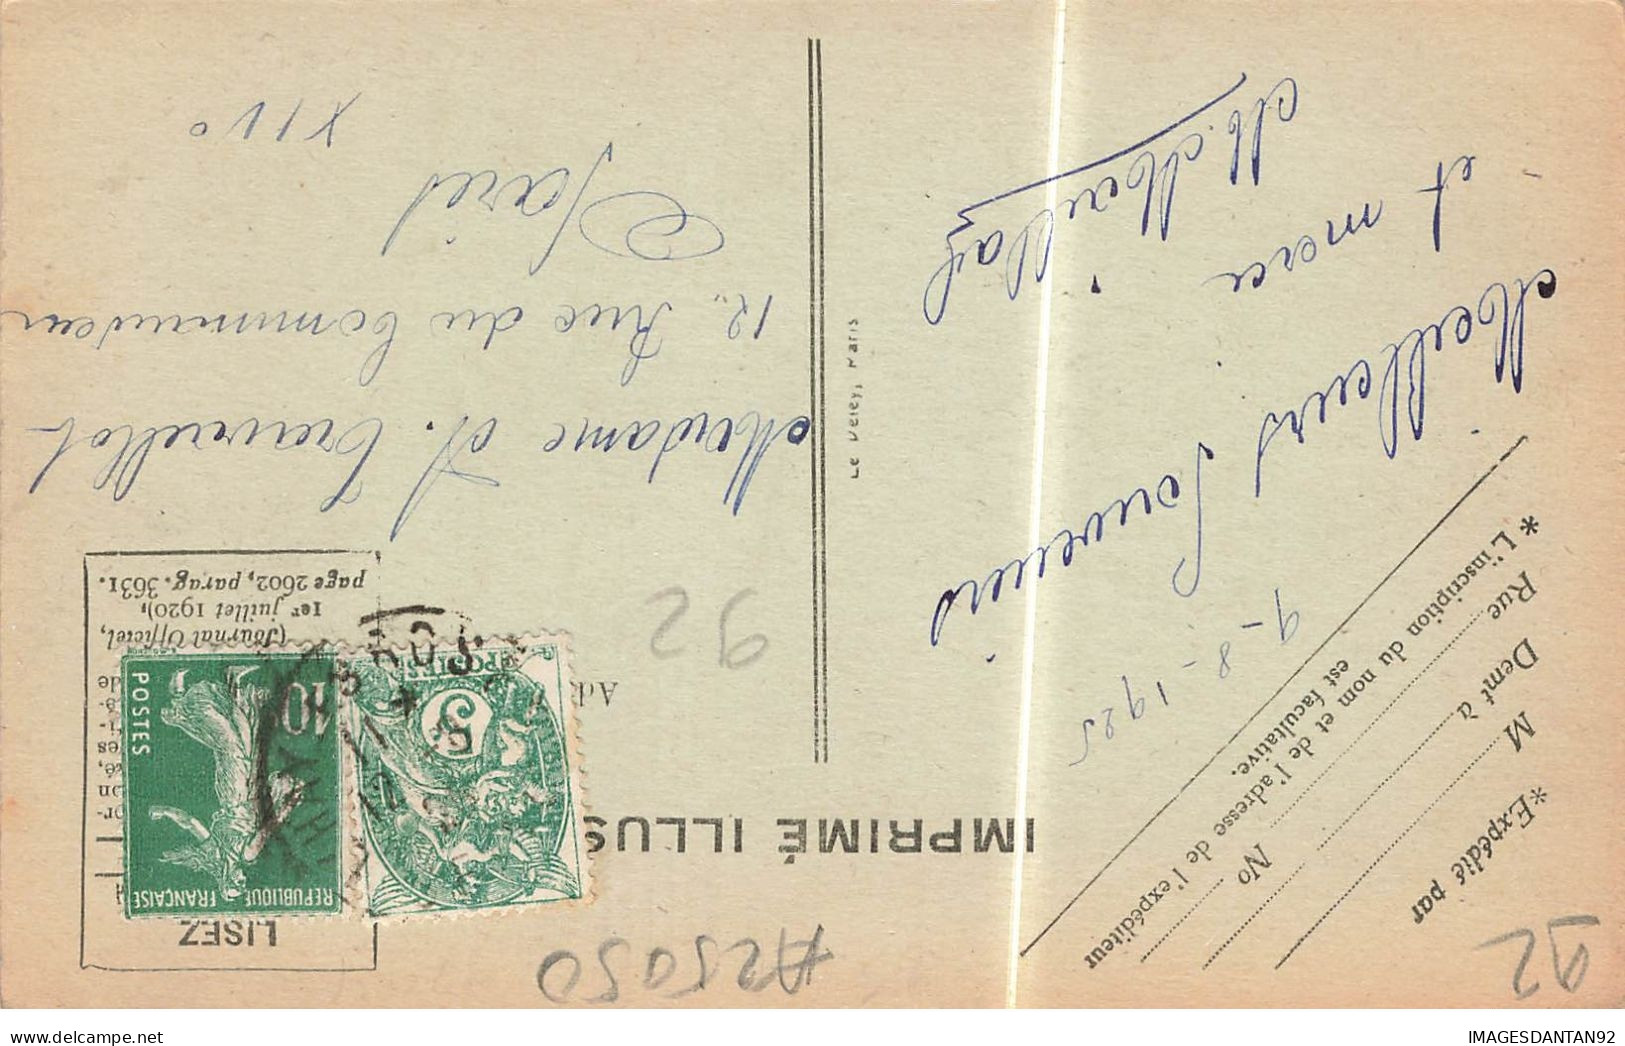 IMPRIMÉ ILLUS
*Expédié par
M
Demt à
Rue
No
*L'inscription du nom et de l'adresse de l'expéditeur
est facultative.
9-8-1925
Meilleurs Souvenirs
et merci
M. Maillaf
Le Deley, Paris
LISEZ
(Journal Officiel,
1er juillet 1920),
page 2602, parag. 3631.
REPUBLIQUE FRANÇAISE
10
POSTES
5
POSTES
Ad
Madame A.
12, Rue du Commandeur
Paris
XIVe
92
92
A25050
IMAGESDANTAN92